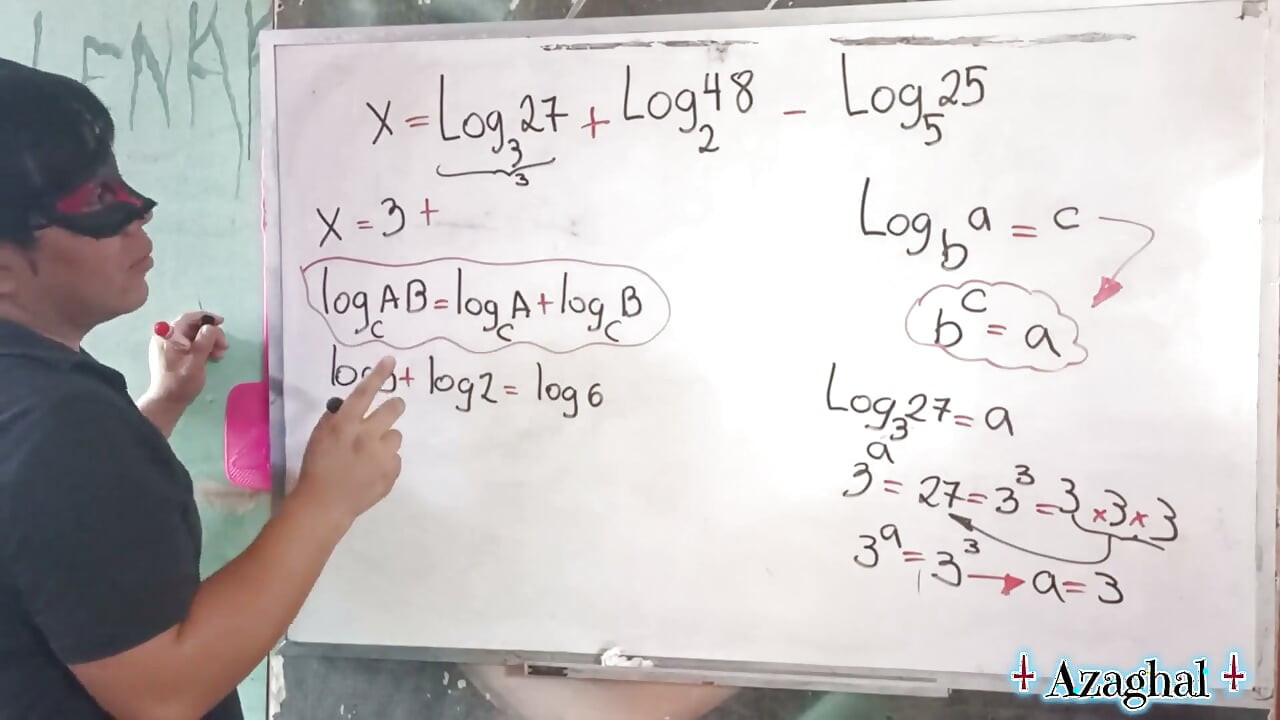 LENKA
X = Log₃27 + Log₂48 - Log₅25
3
X = 3 +
log_C AB = log_C A + log_C B
log + log2 = log6
Log_b a = c
b^c = a
Log₃27 = a
3^a = 27 = 3³ = 3 × 3 × 3
3^a = 3³ → a = 3
Azaghal